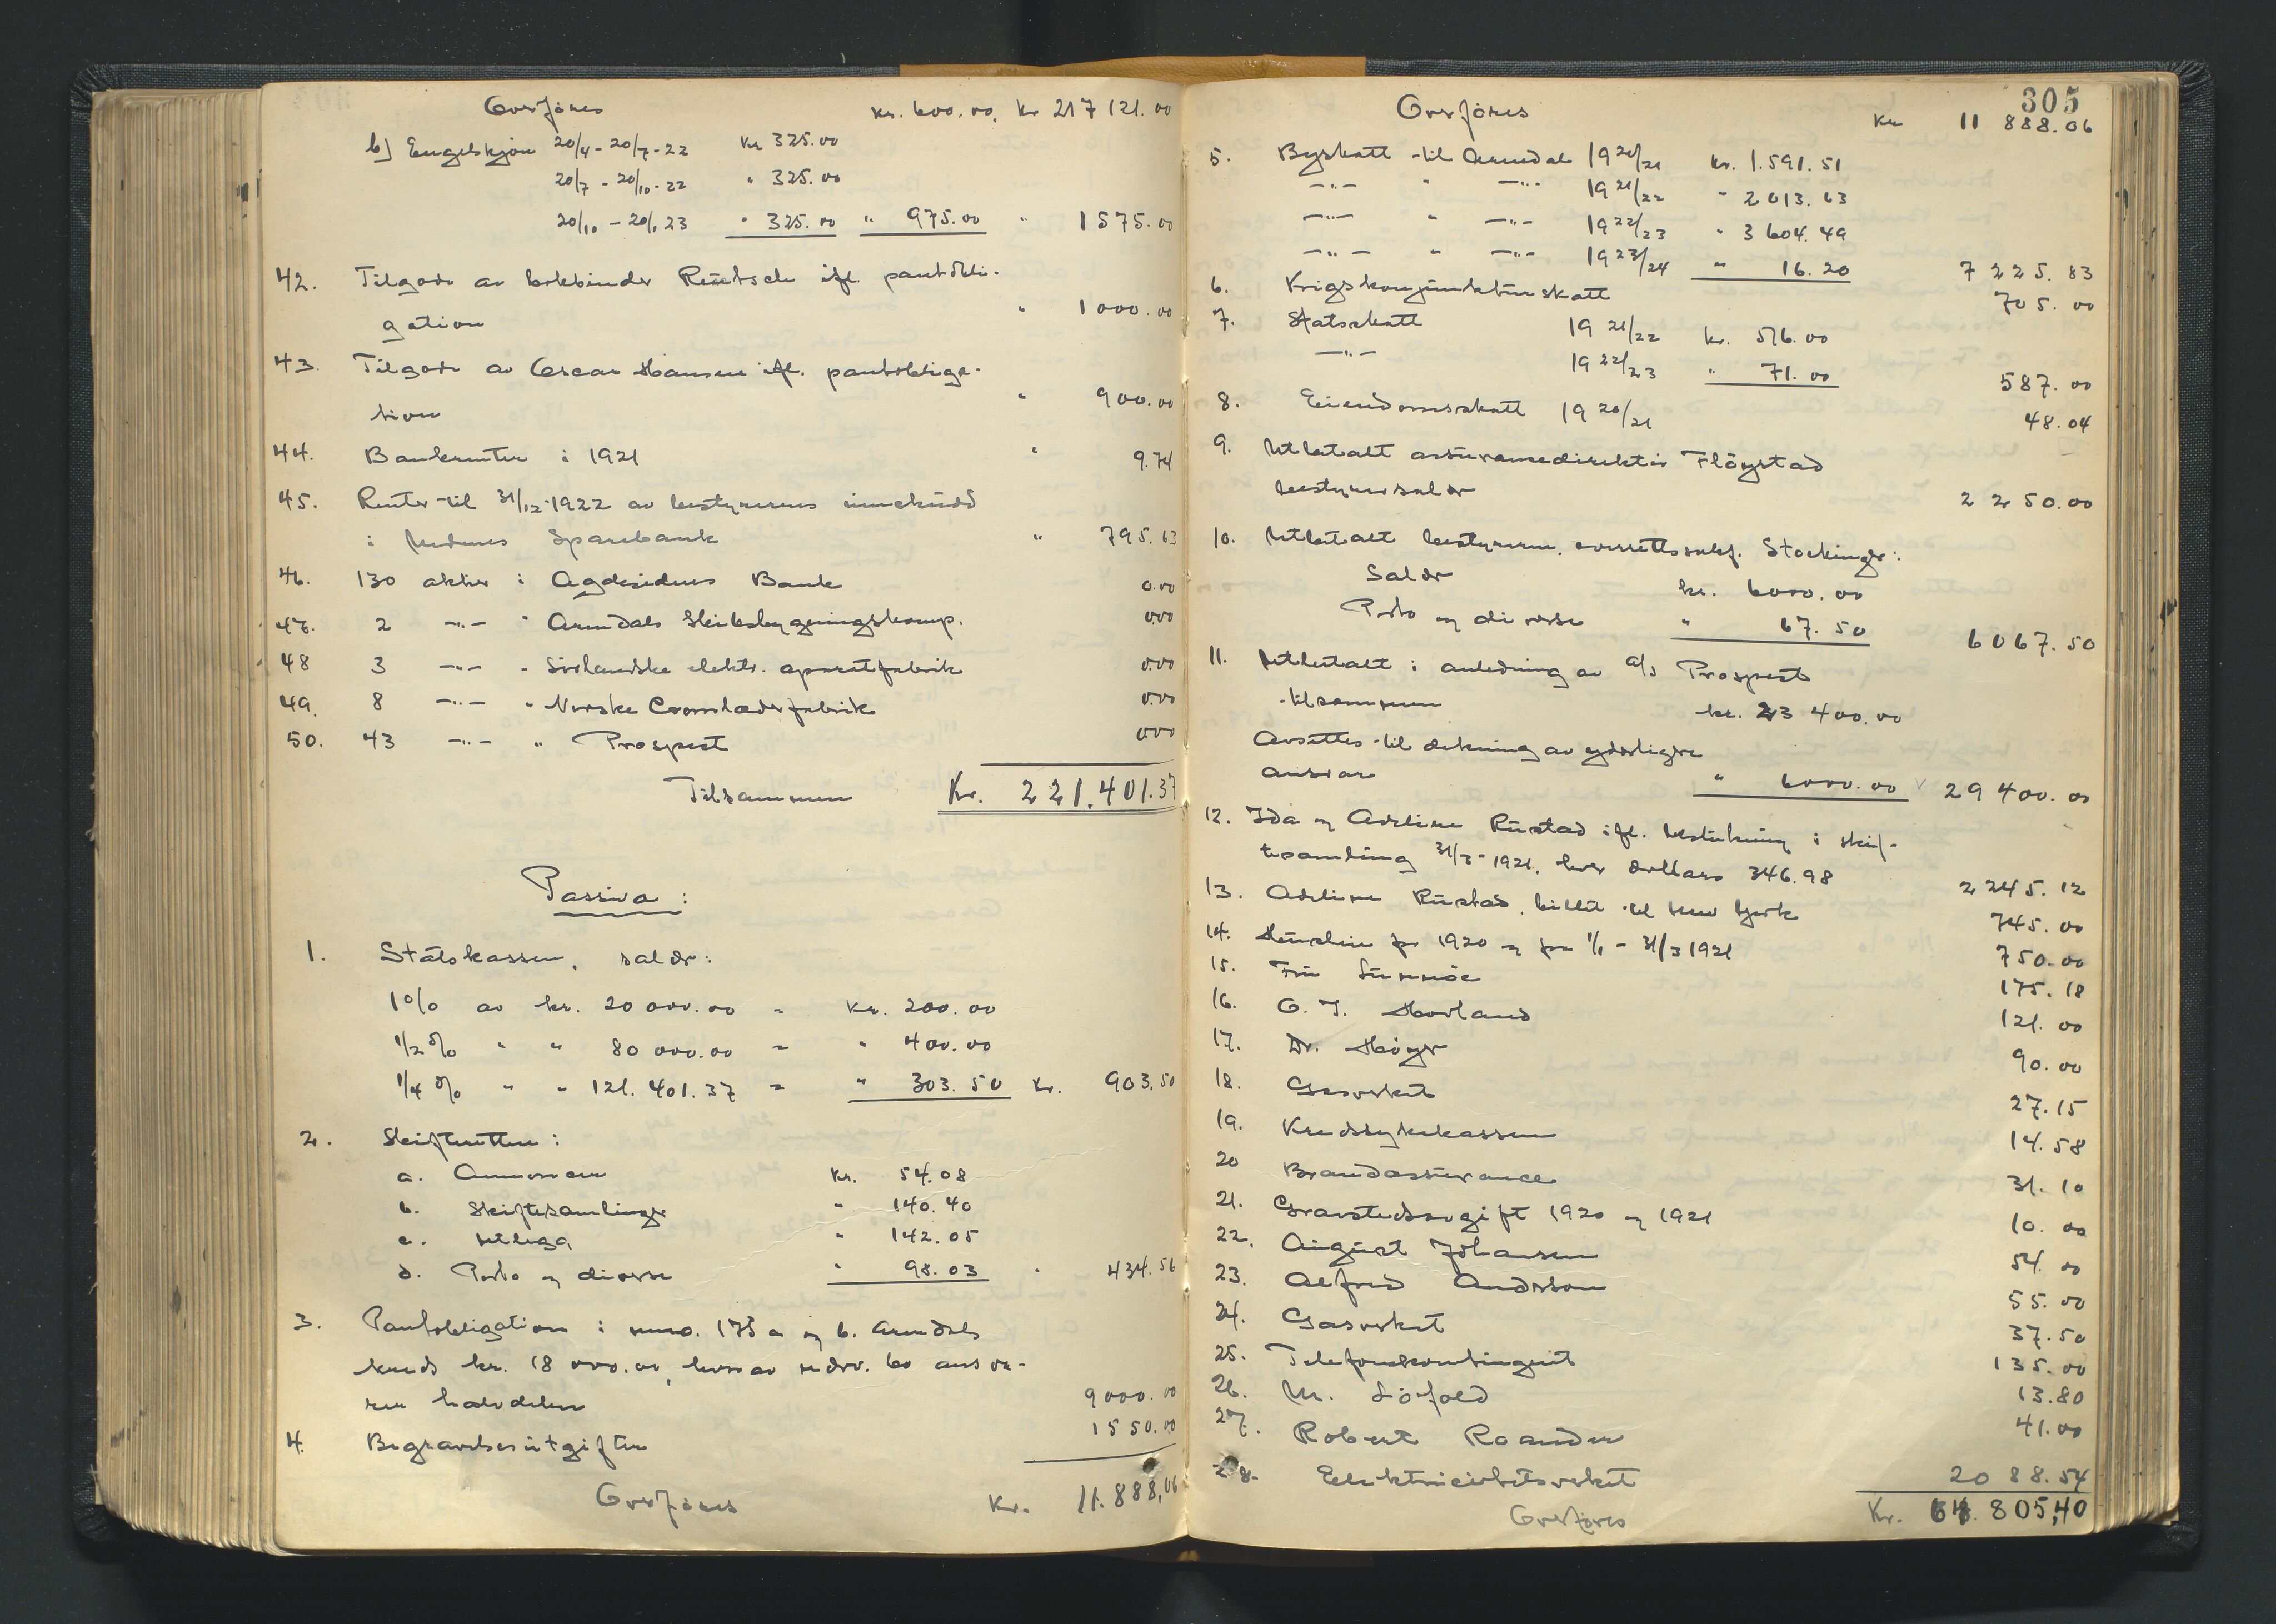 Overføres kr. 600.00. kr 217 121.00
b) Engelskjøn 20/4 - 20/7 - 22 kr 325.00
20/7 - 20/10 - 22 " 325.00
20/10 - 20/1 23 " 325.00 " 975.00 " 1575.00
42. Tilgode av bokbinder Rüetsch ifl. pantobli-
gation " 1000.00
43. Tilgode av Oscar Hansen ifl. pantobliga-
tion " 900.00
44. Bankrenter i 1921 " 9.74
45. Renter til 31/12-1922 av bestyrerens innskudd
i Sparebank " 795.63
46. 130 aktier i Agdesidens Bank 0.00
47. 2 -"- " Arendals Skibsbygningskomp. 0.00
48 3 -"- " Sørlandske elektr. aparatfabrik 0.00
49. 8 -"- " Norske Cromlæderfabrik 0.00
50. 43 -"- " Prospect 0.00
Tilsammen Kr. 221.401.37
Passiva:
1. Statskassen, salær:
1% av kr. 20 000.00 = Kr. 200.00
1/2% " " 80 000.00 = " 400.00
1/4% " " 121.401.37 = " 303.50 Kr. 903.50
2. Skifteretten:
a. Annoncer Kr. 54.08
b. Skiftesamlinger " 140.40
c. Utlegg " 142.05
d. Porto og diverse " 98.03 " 434.56
3. Pantobligation i mno. 173 a og b. Arendals
kr. 18 000.00, hvorav bo ansva-
rer halvdelen 9000.00
4. Begravelsesutgifter 1550.00
Overføres Kr. 11.888,06
305
Overføres Kr 11 888.06
5. Byskatt til Arendal 1920/21 kr. 1.591.51
-"- " -"- 1921/22 " 2013.63
-"- " -"- 1922/23 " 3604.49
-"- " -"- 1923/24 " 16.20 7225.83
6. Krigskonjunkturskatt 705.00
7. Statsskatt 1921/22 kr. 516.00
-"- 1922/23 " 71.00 587.00
8. Eiendomsskatt 1920/21 48.04
9. Utbetalt assurancedirektør Fløystad
bestyrersalær 2250.00
10. Utbetalt bestyreren, overrettssakf. Stockinger:
Salær kr. 6000.00
Porto og diverse " 67.50 6067.50
11. Utbetalt i anledning av A/S Prospect
tilsammen kr. 23 400.00
Avsettes til dekning av yderligere
ansvar " 6000.00 29 400.00
12. Ida og Adeline Rustad ifl. beslutning i skif-
tesamling 31/3-1921, hver dollars 346.98 2245.12
13. Adeline Rustad, billet til New York 745.00
14. Husleie for 1920 og fra 1/1 - 31/3 1921 750.00
15. Fru 175.18
16. O. T. Hovland 121.00
17. Dr. Høyer 90.00
18. Gasverket 27.15
19. Kredssykekassen 14.58
20 Brandassurance 31.10
21. Gravstedsavgift 1920 og 1921 10.00
22. August Johansen 54.00
23. Alfred Anderson 55.00
24. Gasverket 37.50
25. Telefonkontingent 135.00
26. M. Løfold 13.80
27. Robert Roander 41.00
28. Elektricitetsverket 2088.54
Overføres Kr. 64.805,40